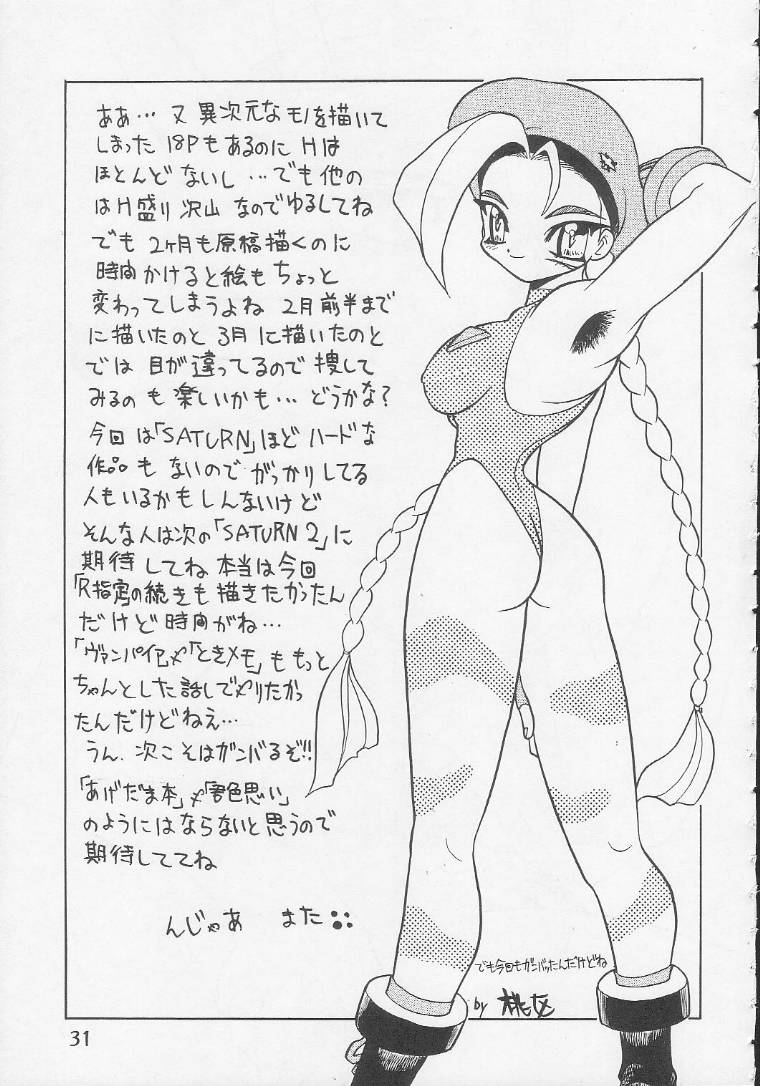 ああ… 又 異次元なモノを描いて
しまった 18Pもあるのに Hは
ほとんど ないし …でも他の
はH盛り沢山 なのでゆるしてね
でも 2ヶ月も原稿描くのに
時間 かけると絵もちょっと
変わってしまうよね 2月前半まで
に描いたのと 3月に描いたのと
では 目が違ってるので捜して
みるの も 楽しいかも… どうかな?
今回は「SATURN」ほど ハードな
作品も ないので がっかりしてる
人もいるかもしんないけど
そんな人は次の「SATURN 2」に
期待 してね 本当は今回
「R指定」の続きも描きたかったん
だけど 時間がね…
「ヴァンパイア」や「ときメモ」ももっと
ちゃんとした話しでやりたかっ
たんだけどねえ…
うん、次こそはガンバるぞ!!
「あげだま本」や「君色思い」
のようにはならないと思うので
期待しててね
んじゃあ また
でも今回もガンバったんだけどね
by
31